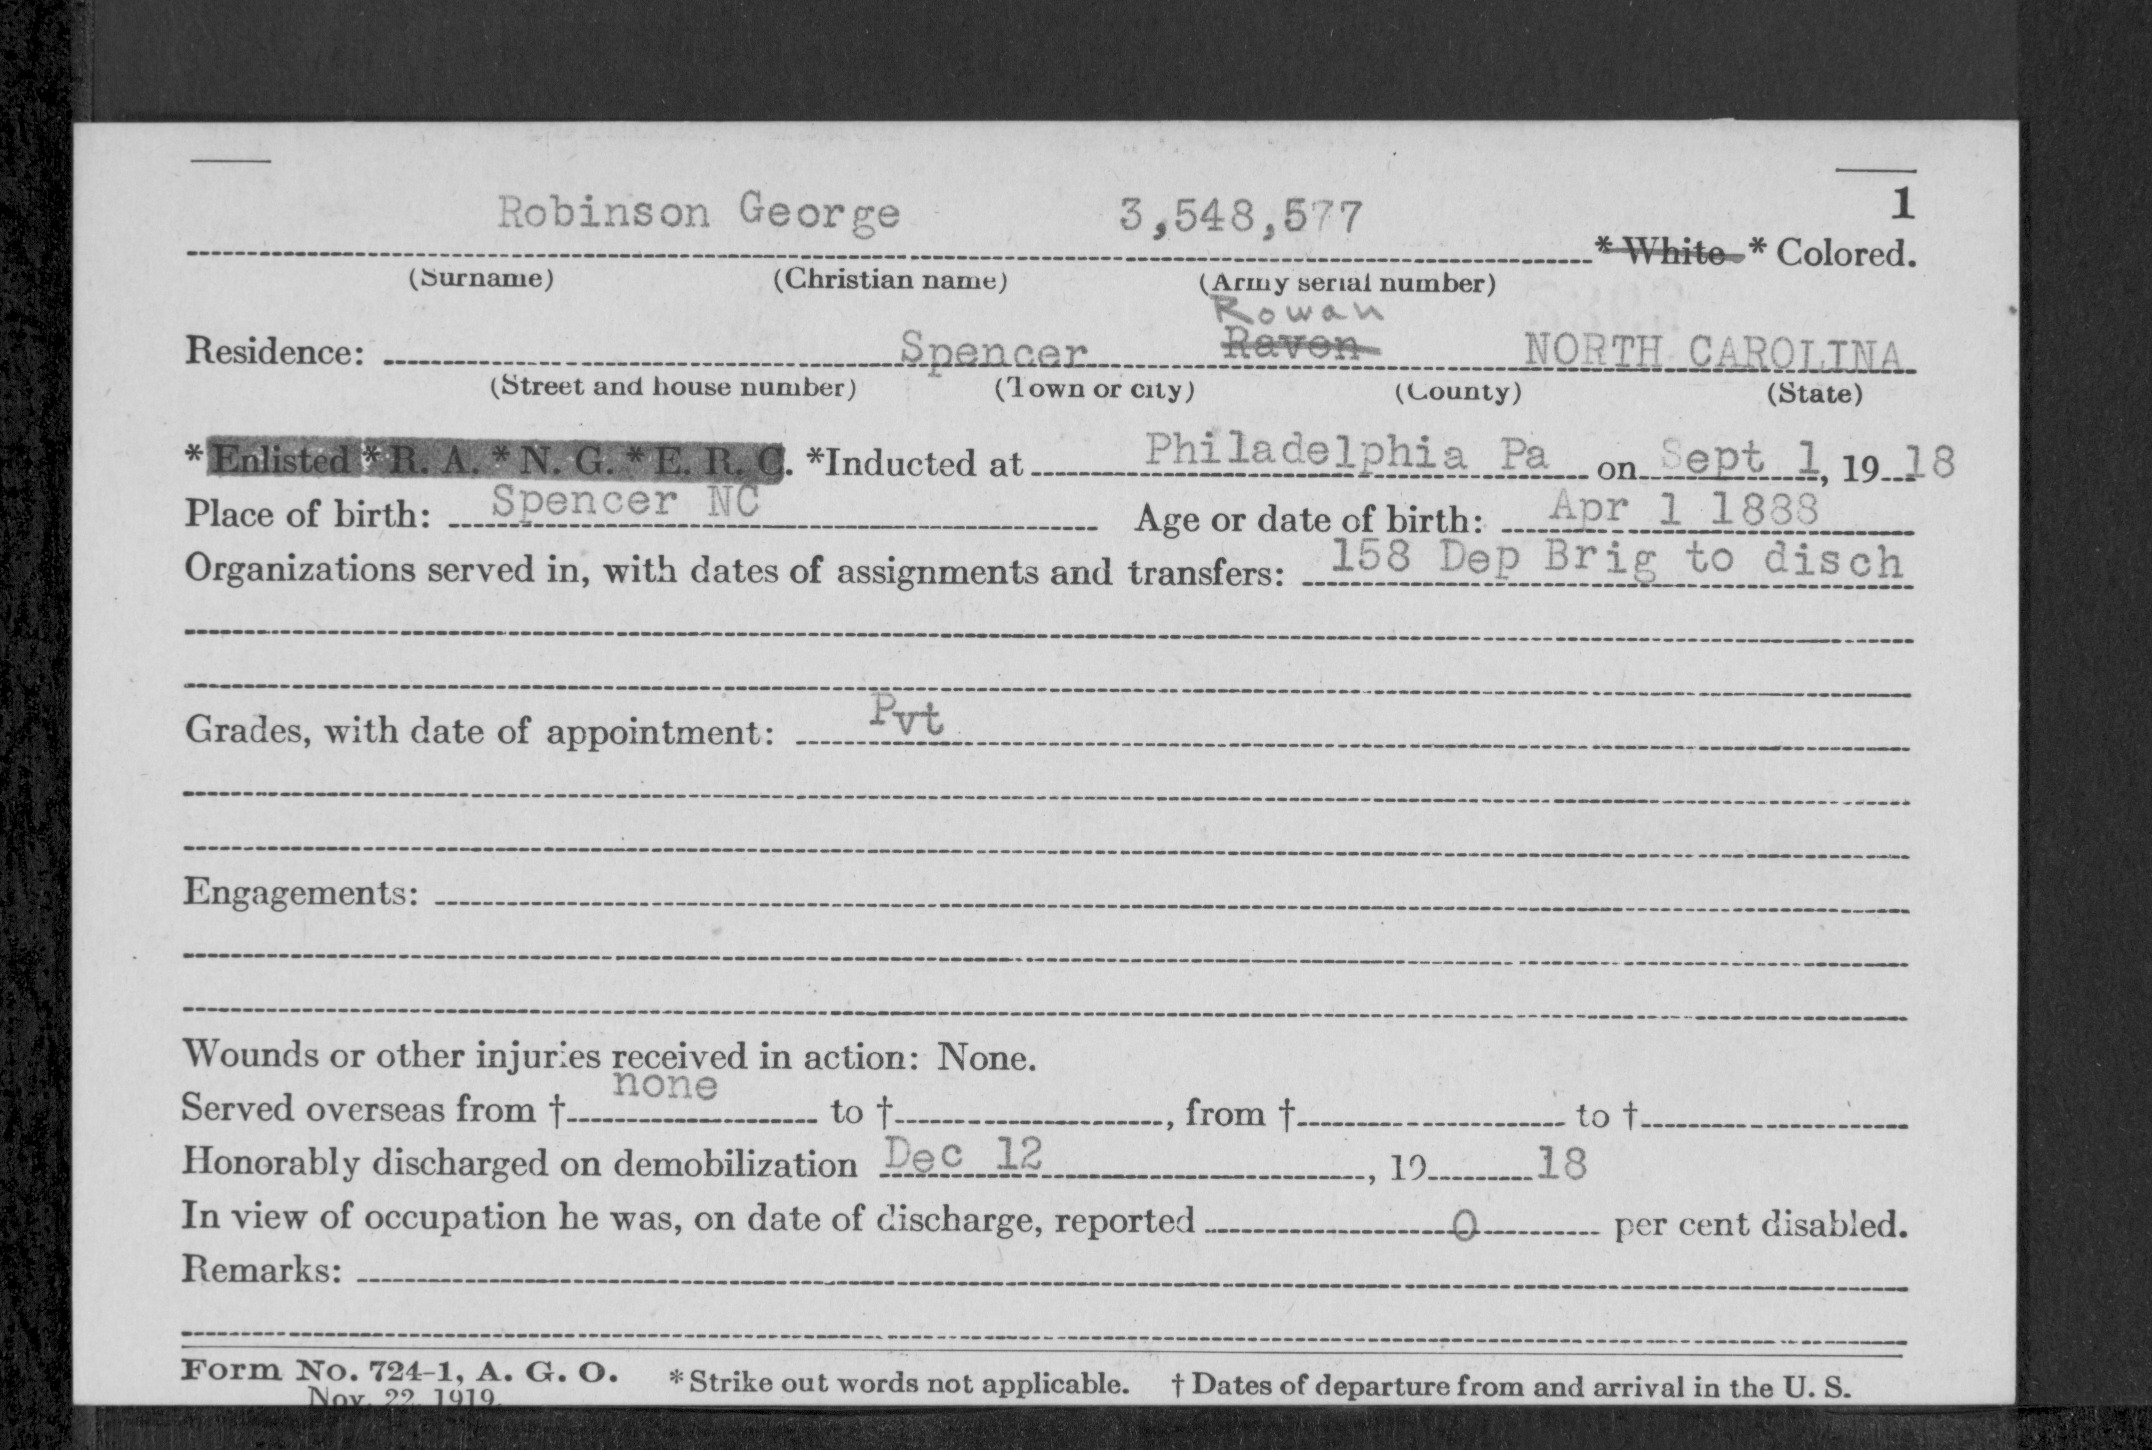 1
Robinson George 3,548,577 * White * Colored.
(Surname) (Christian name) (Army serial number)
Rowan
Residence: Spencer Raven NORTH CAROLINA
(Street and house number) (Town or city) (County) (State)
* Enlisted * R. A. * N. G. * E. R. C. *Inducted at Philadelphia Pa on Sept 1, 19 18
Place of birth: Spencer NC Age or date of birth: Apr 1 1888
Organizations served in, with dates of assignments and transfers: 158 Dep Brig to disch
Grades, with date of appointment: Pvt
Engagements:
Wounds or other injuries received in action: None.
Served overseas from † none to † , from † to †
Honorably discharged on demobilization Dec 12 , 19 18
In view of occupation he was, on date of discharge, reported 0 per cent disabled.
Remarks:
Form No. 724-1, A. G. O. * Strike out words not applicable. † Dates of departure from and arrival in the U. S.
Nov. 22, 1919.